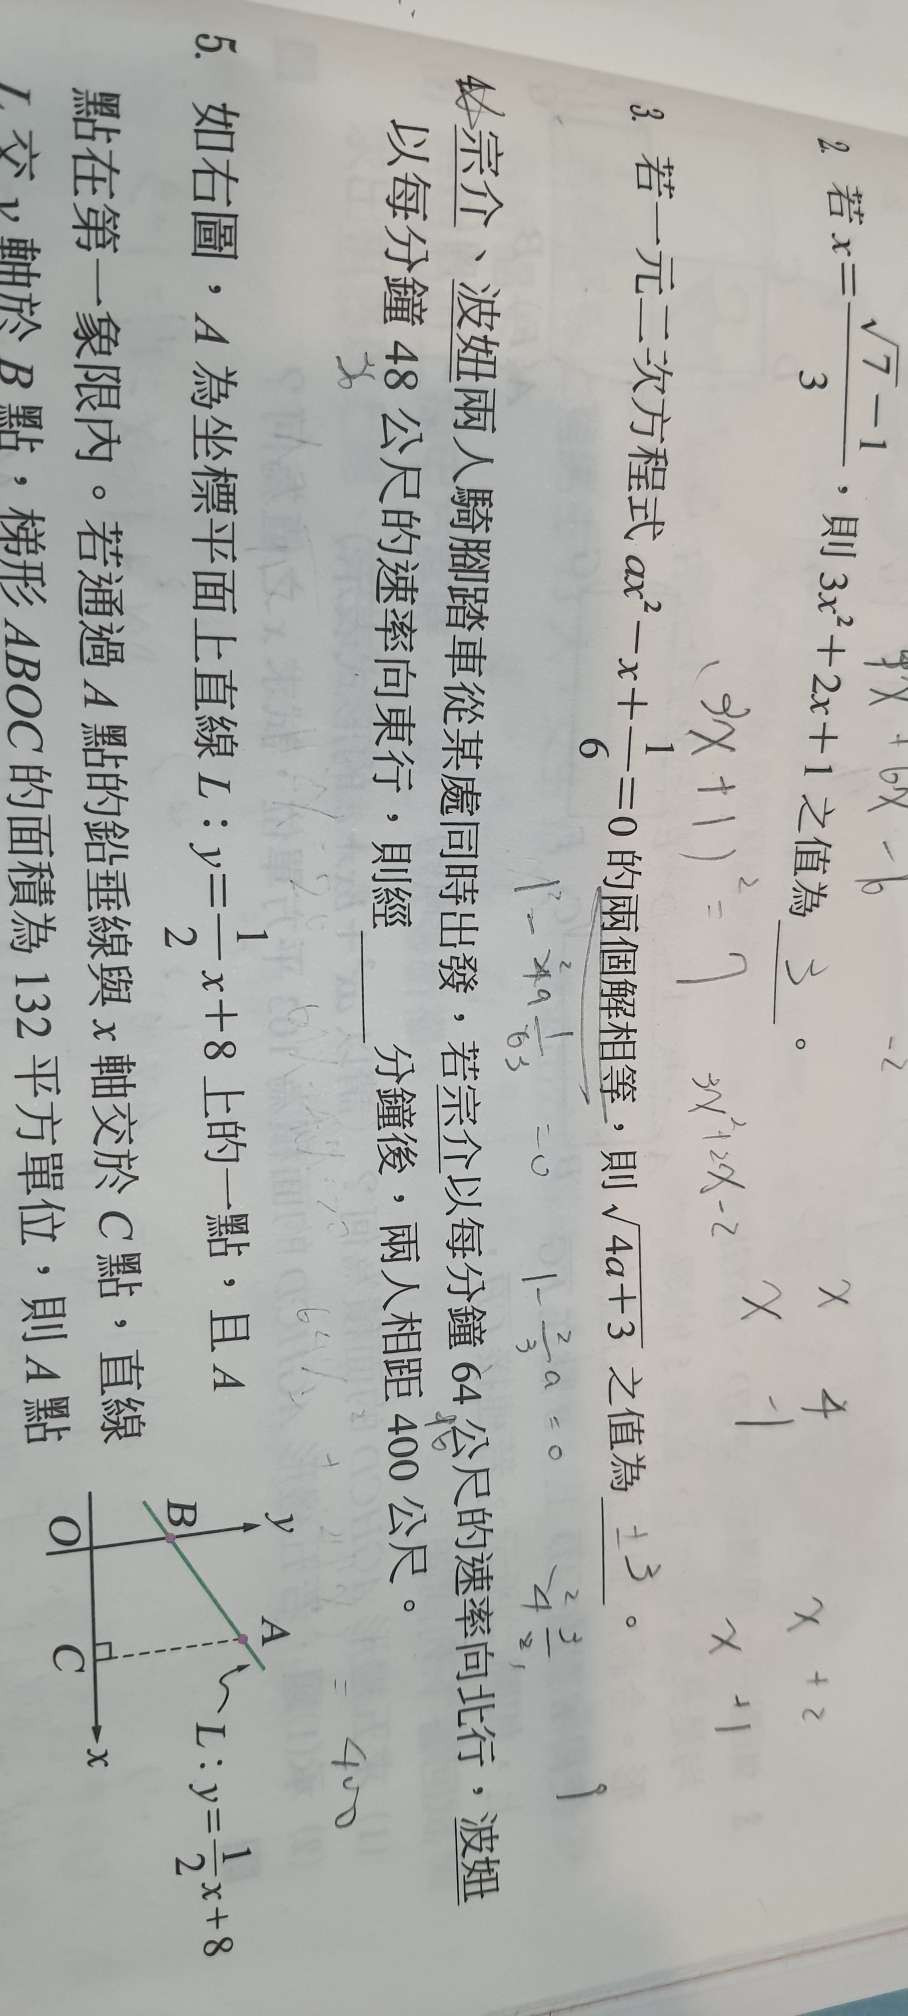 2. 若 x = (√7 − 1)/3，則 3x² + 2x + 1 之值為 3 。
(3x + 1)² = 7
3x² + 2x − 2
x 4
x −1
x + 2
x + 1
−2
3. 若一元二次方程式 ax² − x + 1/6 = 0 的兩個解相等，則 √(4a + 3) 之值為 ±3 。
= 0
1 − 2/3 a = 0
4. 宗介、波妞兩人騎腳踏車從某處同時出發，若宗介以每分鐘 64 公尺的速率向北行，波妞
以每分鐘 48 公尺的速率向東行，則經 ____ 分鐘後，兩人相距 400 公尺。
= 400
5. 如右圖，A 為坐標平面上直線 L：y = 1/2 x + 8 上的一點，且 A
點在第一象限內。若通過 A 點的鉛垂線與 x 軸交於 C 點，直線
L 交 y 軸於 B 點，梯形 ABOC 的面積為 132 平方單位，則 A 點
y
A
B
L：y = 1/2 x + 8
O
C
x